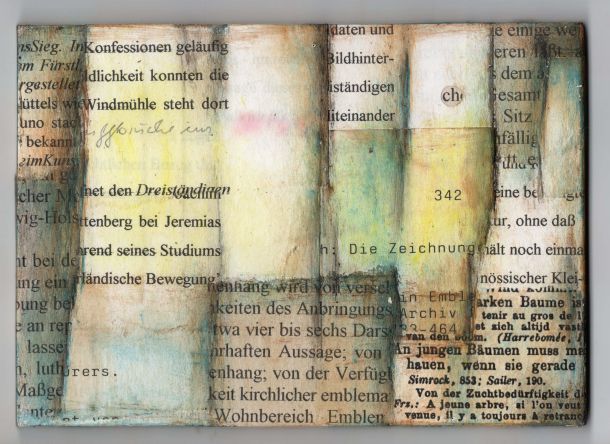 nsSieg. In
Konfessionen geläufig
daten und
ie einige we
m Fürstl.
Bildhinter-
eren läßt, a
rgestellet
dlichkeit konnten die
us dem a
üttels wi
Windmühle steht dort
uständigen
che
Gesamt
uno stac
liteinander
Sitz
bekann
nfällig
eimKuns
und
net den Dreiständigen
342
eine be
cher M
vig-Hols
ttenberg bei Jeremias
ur, ohne daß
rend seines Studiums
h: Die Zeichnung
hält noch einma
nt bei de
rländische Bewegung'
nössischer Klei-
ung ein
enhang wird von versch
bung be
keiten des Anbringungs
in Emble
arken Baume is
e an rep
Archiv
tenir au gros de l'
twa vier bis sechs Dars
33-464
et sich altijd vast
lassen
van den boom. (Harrebomée, I
rhaften Aussage; von
An jungen Bäumen muss ma
n, luth
urers.
enhang; von der Verfügb
hauen, wenn sie gerade
Maßge
keit kirchlicher emblema
Simrock, 853; Sailer, 190.
Von der Zuchtbedürftigkeit d
Wohnbereich Emblen
Frz.: A jeune arbre, si l'on veut
venue, il y a toujours à retranc